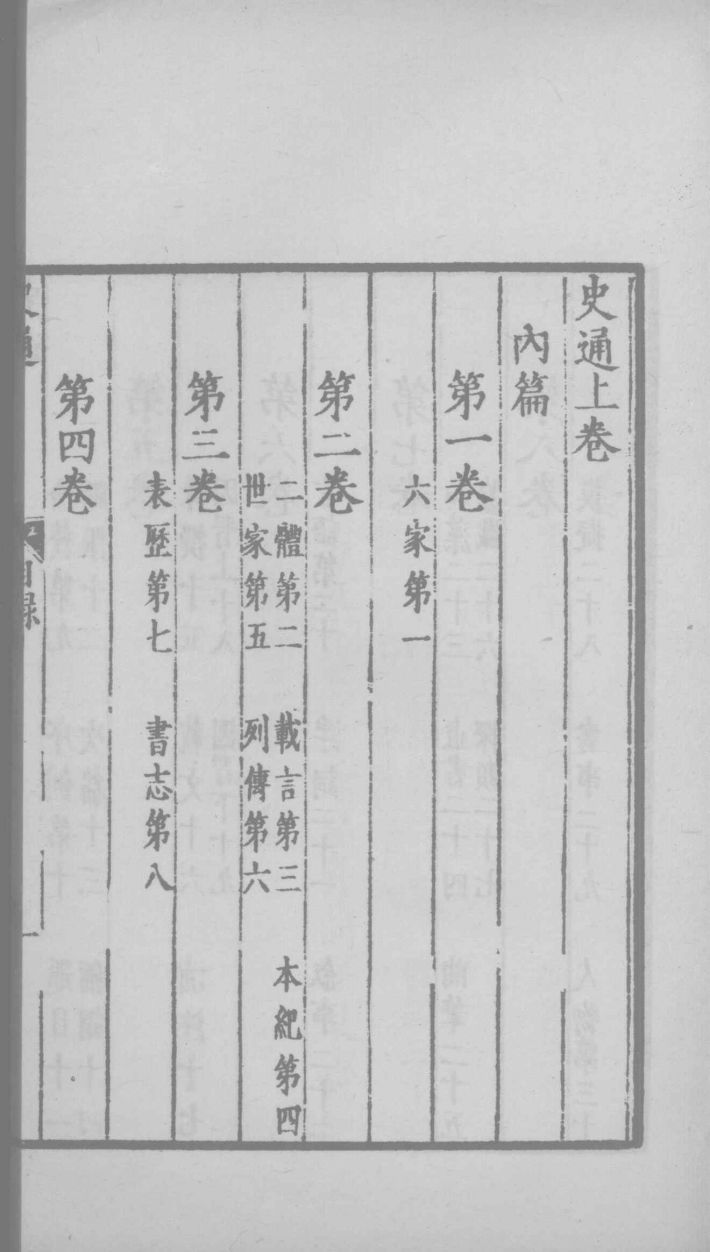 史通上卷
內篇
第一卷
六家第一
第二卷
二體第二 載言第三 本紀第四
世家第五 列傳第六
第三卷
表歷第七 書志第八
第四卷
目錄
一